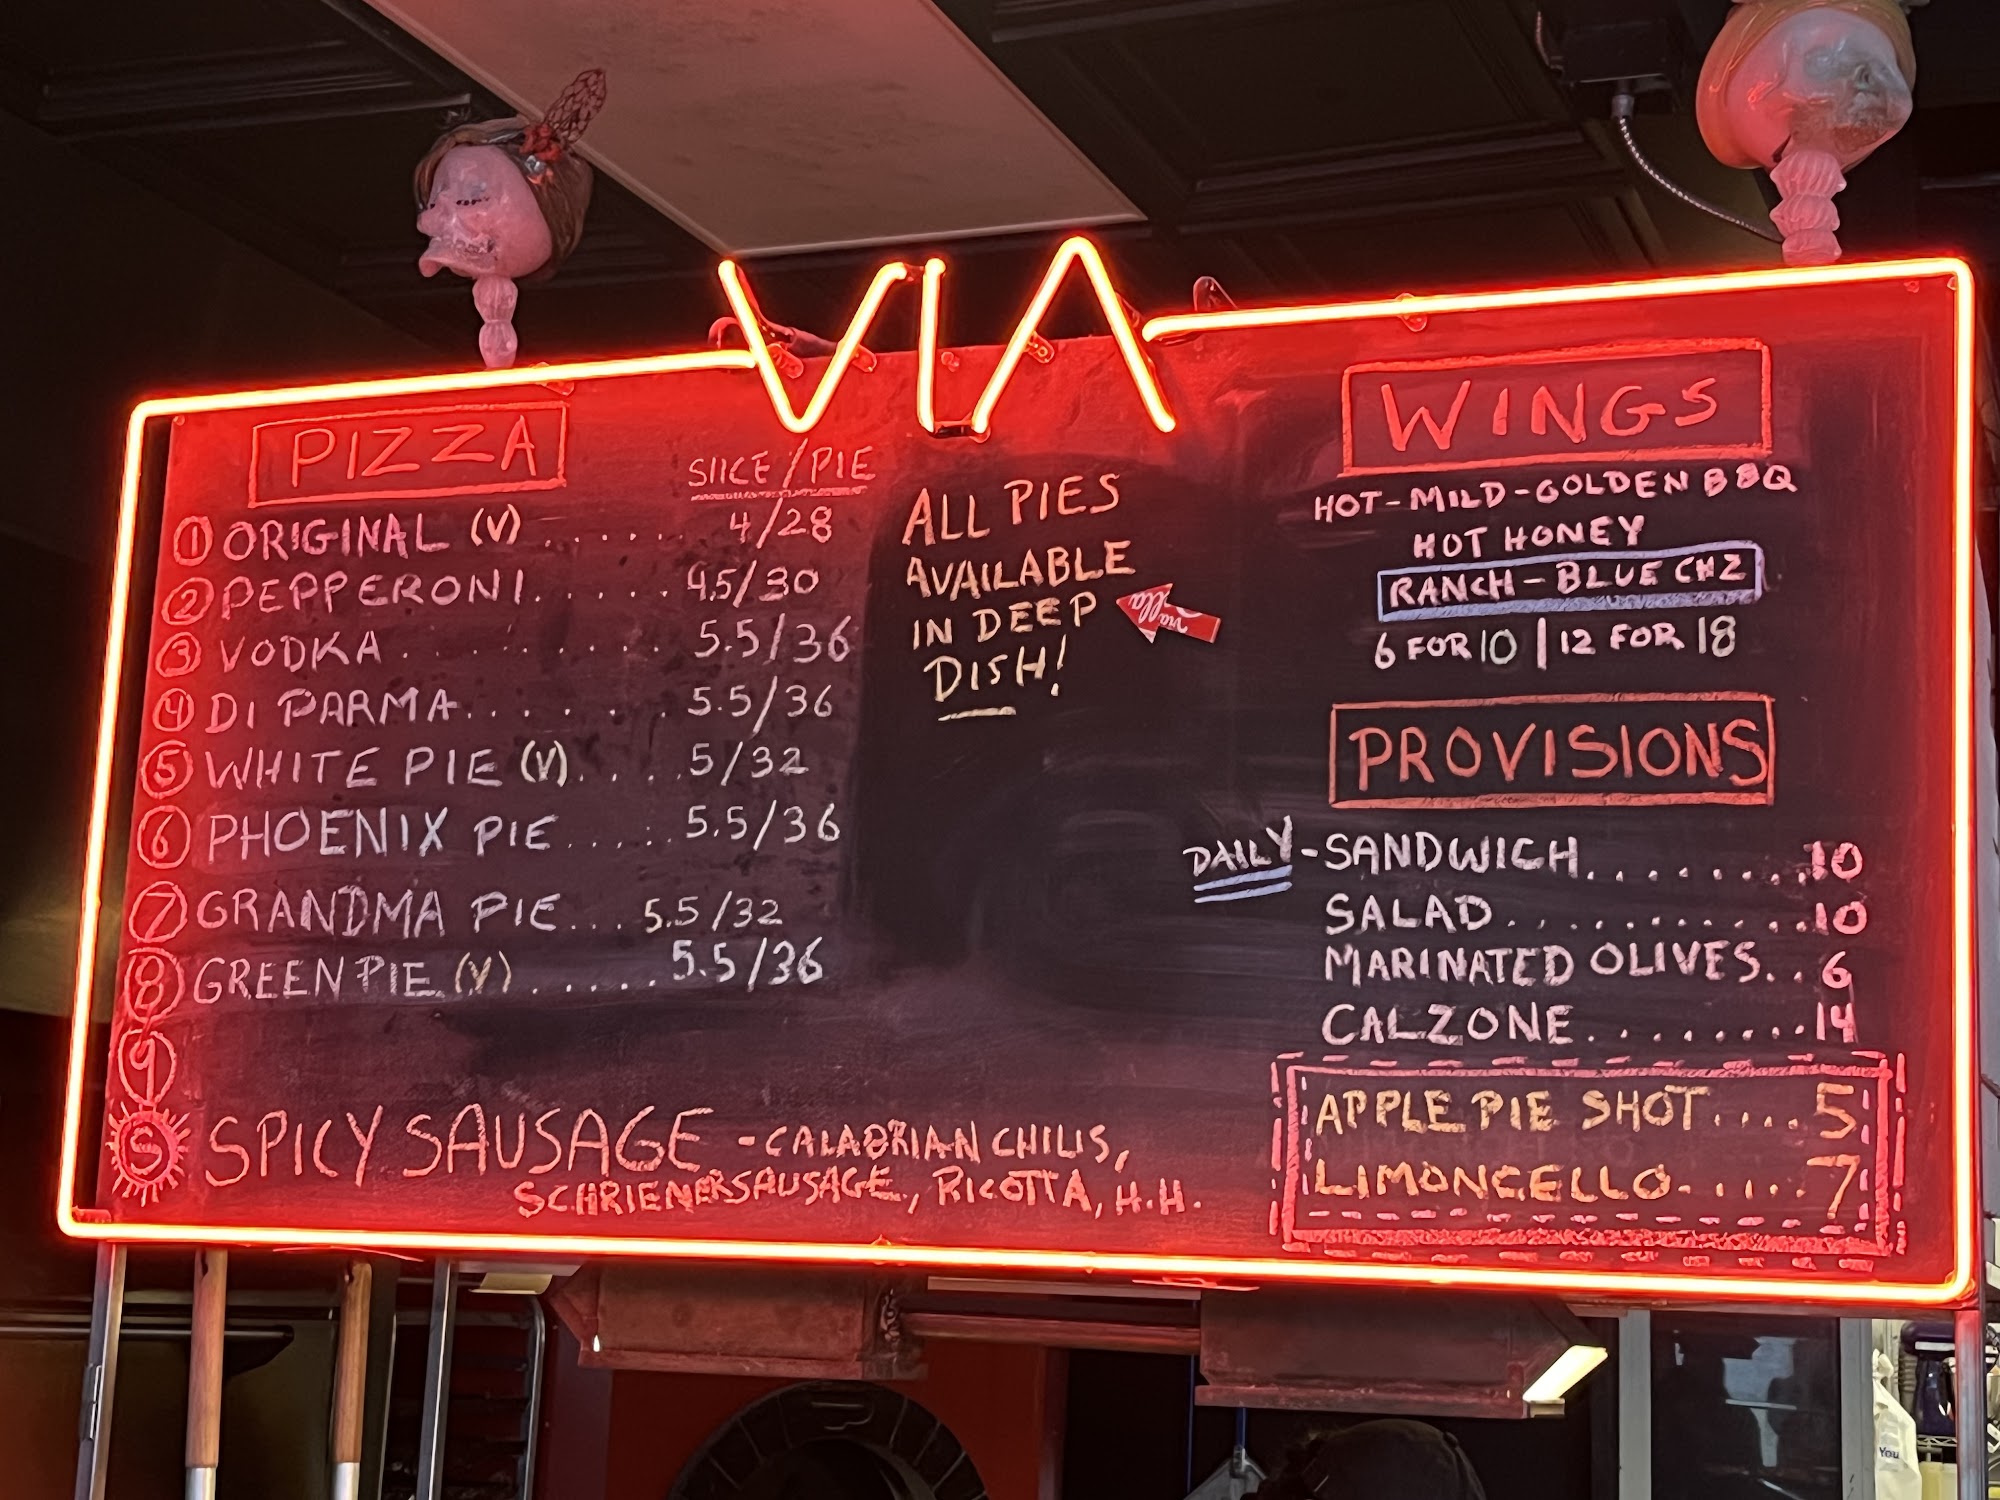 VIA
PIZZA
SLICE/PIE
1 ORIGINAL (V)...... 4/28
2 PEPPERONI...... 4.5/30
3 VODKA......... 5.5/36
4 DI PARMA....... 5.5/36
5 WHITE PIE (V).... 5/32
6 PHOENIX PIE..... 5.5/36
7 GRANDMA PIE... 5.5/32
8 GREEN PIE (V)...... 5.5/36
9
S SPICY SAUSAGE - CALABRIAN CHILIS,
SCHRIENERSAUSAGE, RICOTTA, H.H.
ALL PIES
AVAILABLE
IN DEEP
DISH!
WINGS
HOT-MILD-GOLDEN BBQ
HOT HONEY
RANCH-BLUE CHZ
6 FOR 10 | 12 FOR 18
PROVISIONS
DAILY-SANDWICH.........10
SALAD...........10
MARINATED OLIVES..6
CALZONE.........14
APPLE PIE SHOT....5
LIMONCELLO......7
You